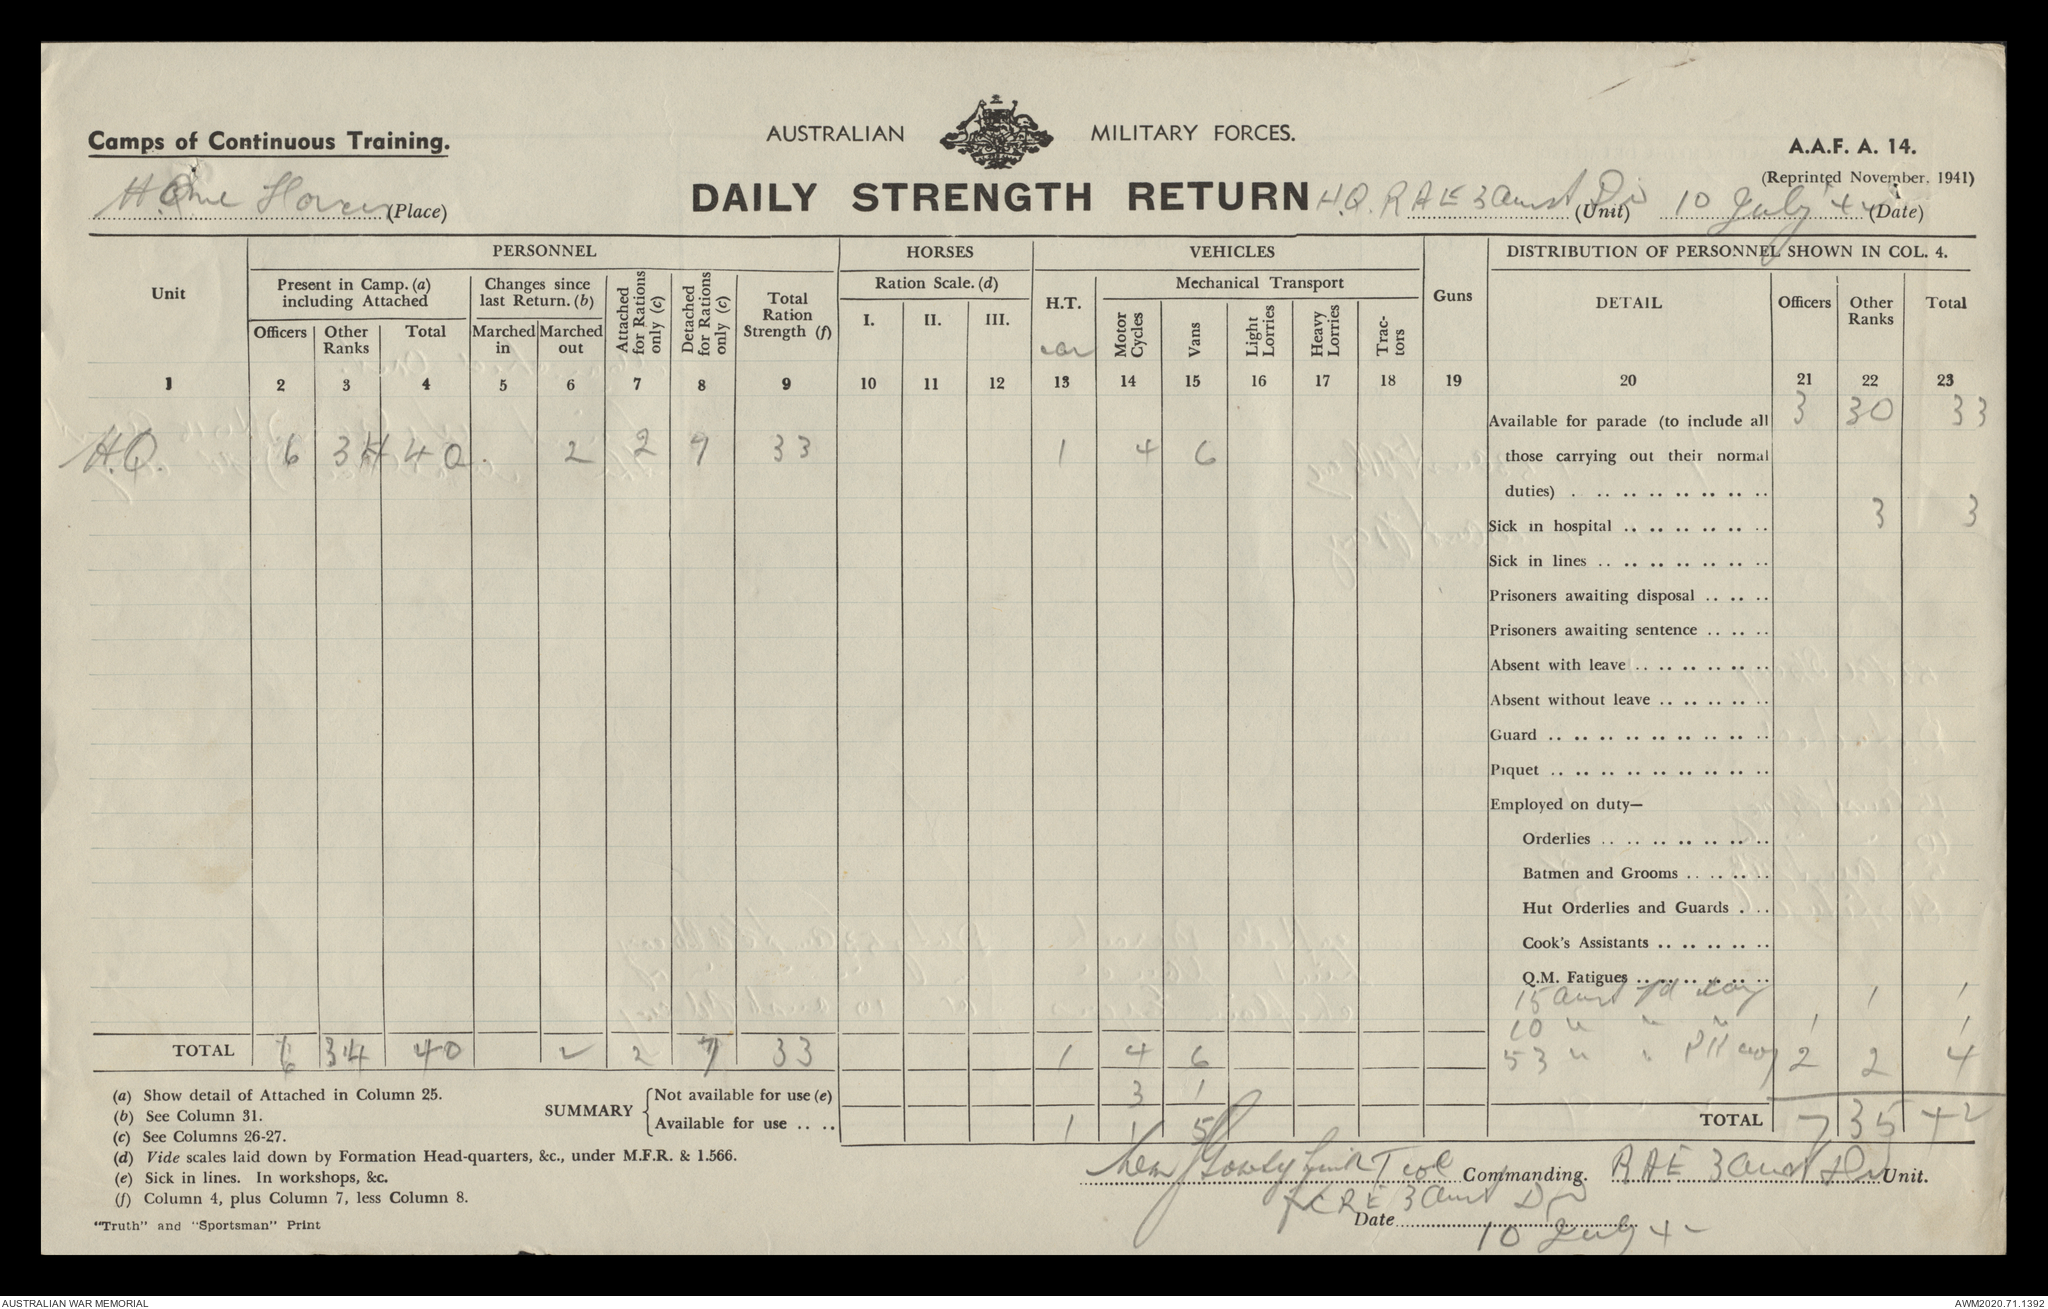 Camps of Continuous Training.
AUSTRALIAN MILITARY FORCES.
A.A.F. A. 14.
(Reprinted November, 1941)
(Place)
DAILY STRENGTH RETURN H.Q. RAE 3 Aust Div (Unit) 10 July 42 (Date)
PERSONNEL HORSES VEHICLES DISTRIBUTION OF PERSONNEL SHOWN IN COL. 4.
Unit
Present in Camp. (a) including Attached
Changes since last Return. (b)
Attached for Rations only (c)
Detached for Rations only (c)
Total Ration Strength (f)
Ration Scale. (d)
H.T.
car
Mechanical Transport
Guns
DETAIL Officers Other Ranks Total
Officers Other Ranks Total Marched in Marched out
I. II. III.
Motor Cycles Vans Light Lorries Heavy Lorries Trac-tors
1 2 3 4 5 6 7 8 9 10 11 12 13 14 15 16 17 18 19 20 21 22 23
H.Q. 6 34 40 . 2 2 9 33 1 4 6
Available for parade (to include all 3 30 33
those carrying out their normal
duties) . .. .. .. .. .. .. ..
Sick in hospital .. .. .. .. .. .. 3 3
Sick in lines .. .. .. .. .. .. ..
Prisoners awaiting disposal .. .. ..
Prisoners awaiting sentence .. .. ..
Absent with leave .. .. .. .. .. ..
Absent without leave .. .. .. .. ..
Guard .. .. .. .. .. .. .. .. ..
Piquet .. .. .. .. .. .. .. .. ..
Employed on duty—
Orderlies .. .. .. .. .. .. ..
Batmen and Grooms .. .. .. ..
Hut Orderlies and Guards . ..
Cook's Assistants .. .. .. .. ..
Q.M. Fatigues .. .. .. .. .. ..
15 Aust Fd Coy 1 1
10 " " " 1 1
53 " " Pk Coy 2 2 4
TOTAL 6 34 40 2 2 9 33 1 4 6
SUMMARY
Not available for use (e) 3 1
Available for use .. .. 1 1 5
TOTAL 7 35 42
(a) Show detail of Attached in Column 25.
(b) See Column 31.
(c) See Columns 26-27.
(d) Vide scales laid down by Formation Head-quarters, &c., under M.F.R. & 1.566.
(e) Sick in lines. In workshops, &c.
(f) Column 4, plus Column 7, less Column 8.
Commanding. RAE 3 Aust Div Unit.
CRE 3 Aust Div
Date 10 July 42
"Truth" and "Sportsman" Print
AUSTRALIAN WAR MEMORIAL
AWM2020.71.1392